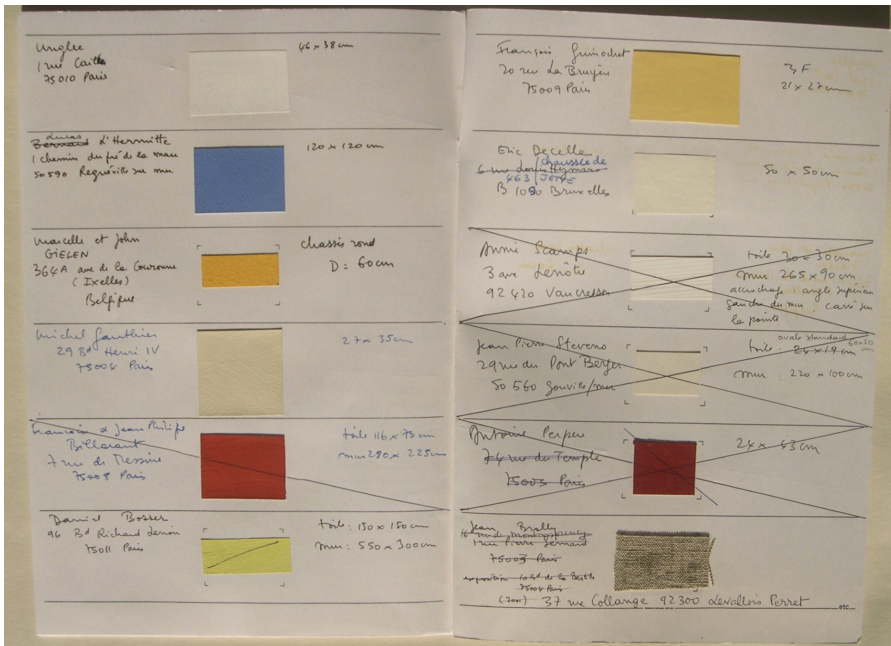 Unglee
1 rue Caillé
75010 Paris
46 x 38 cm
Lucas
Bernard d'Hermitte
1 chemin du pré de la mare
50590 Regnéville sur mer
120 x 120 cm
Marcelle et John
GIELEN
364A ave de la Couronne
(Ixelles)
Belgique
chassis rond
D: 60cm
Michel Gauthier
29 Bd Henri IV
75004 Paris
27 x 35cm
Francoise & Jean Philippe
Billarant
7 rue de Messine
75008 Paris
toile 116 x 75 cm
mur 280 x 225 cm
Daniel Bosser
96 Bd Richard Lenoir
75011 Paris
toile: 150 x 150 cm
mur: 550 x 300cm
François Guinochet
20 rue La Bruyère
75009 Paris
3 F
21 x 27 cm
Eric Decelle
chaussée de
463 JETTE
B 1090 Bruxelles
50 x 50 cm
Annie Scamps
3 ave Lenôtre
92420 Vaucresson
toile 30 x 30 cm
mur 265 x 90 cm
accrochage angle supérieur
gauche du mur carré sur
la pointe
Jean Pierre Steveno
29 rue du Pont Berger
50 560 Gouville/mer
ovale standard 60x50
toile: 24 x 19 cm
mur: 220 x 100cm
Antoine Perpere
74 rue du Temple
75003 Paris
24 x 43 cm
Jean Brolly
16 rue de Montmorency
1 rue Pierre
75003 Paris
exposition 10 Bd de la Bastille
(2001) 37 rue Collange 92300 Levallois Perret
etc